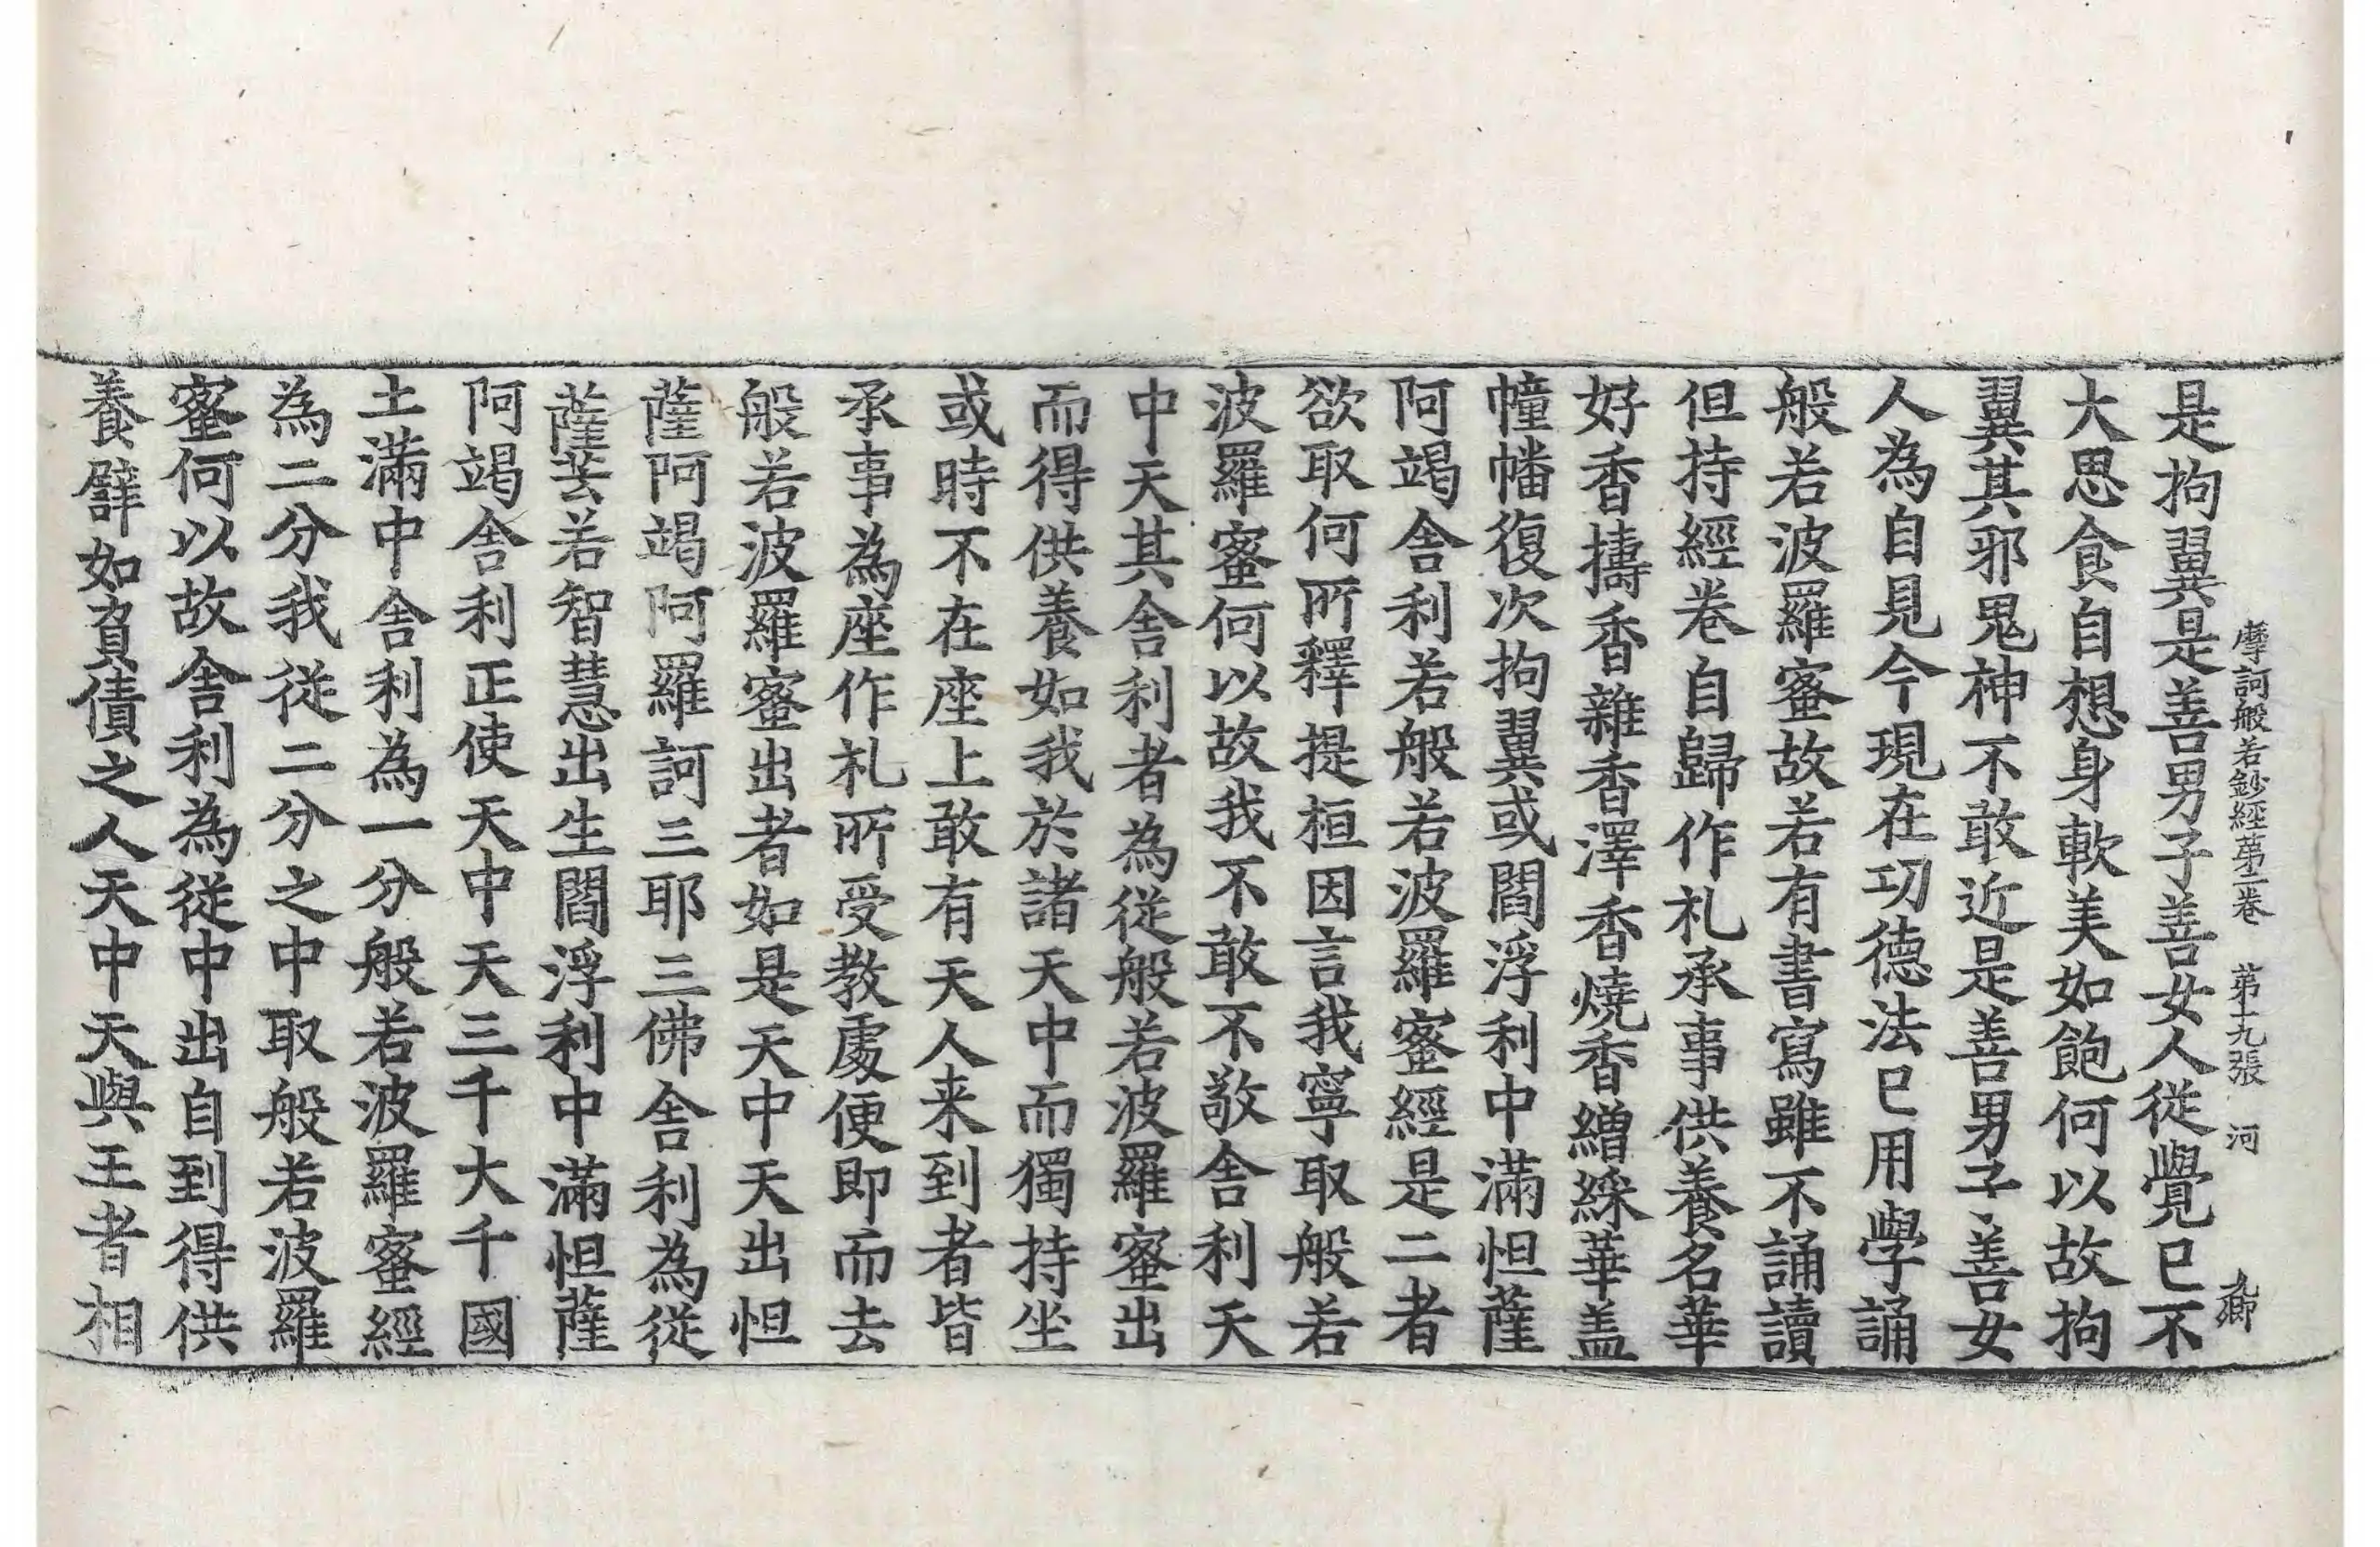 摩訶般若鈔經第二卷　第十九張　河
是拘翼是善男子善女人從覺已不
大思食自想身軟美如飽何以故拘
翼其邪鬼神不敢近是善男子善女
人為自見今現在功德法已用學誦
般若波羅蜜故若有書寫雖不誦讀
但持經卷自歸作礼承事供養名華
好香擣香雜香澤香燒香繒綵華盖
幢幡復次拘翼或閻浮利中滿怛薩
阿竭舍利若般若波羅蜜經是二者
欲取何所釋提桓因言我寧取般若
波羅蜜何以故我不敢不敬舍利天
中天其舍利者為從般若波羅蜜出
而得供養如我於諸天中而獨持坐
或時不在座上敢有天人来到者皆
承事為座作礼所受教處便即而去
般若波羅蜜出者如是天中天出怛
薩阿竭阿羅訶三耶三佛舍利為從
薩芸若智慧出生閻浮利中滿怛薩
阿竭舍利正使天中天三千大千國
土滿中舍利為一分般若波羅蜜經
為二分我從二分之中取般若波羅
蜜何以故舍利為從中出自到得供
養譬如負債之人天中天與王者相